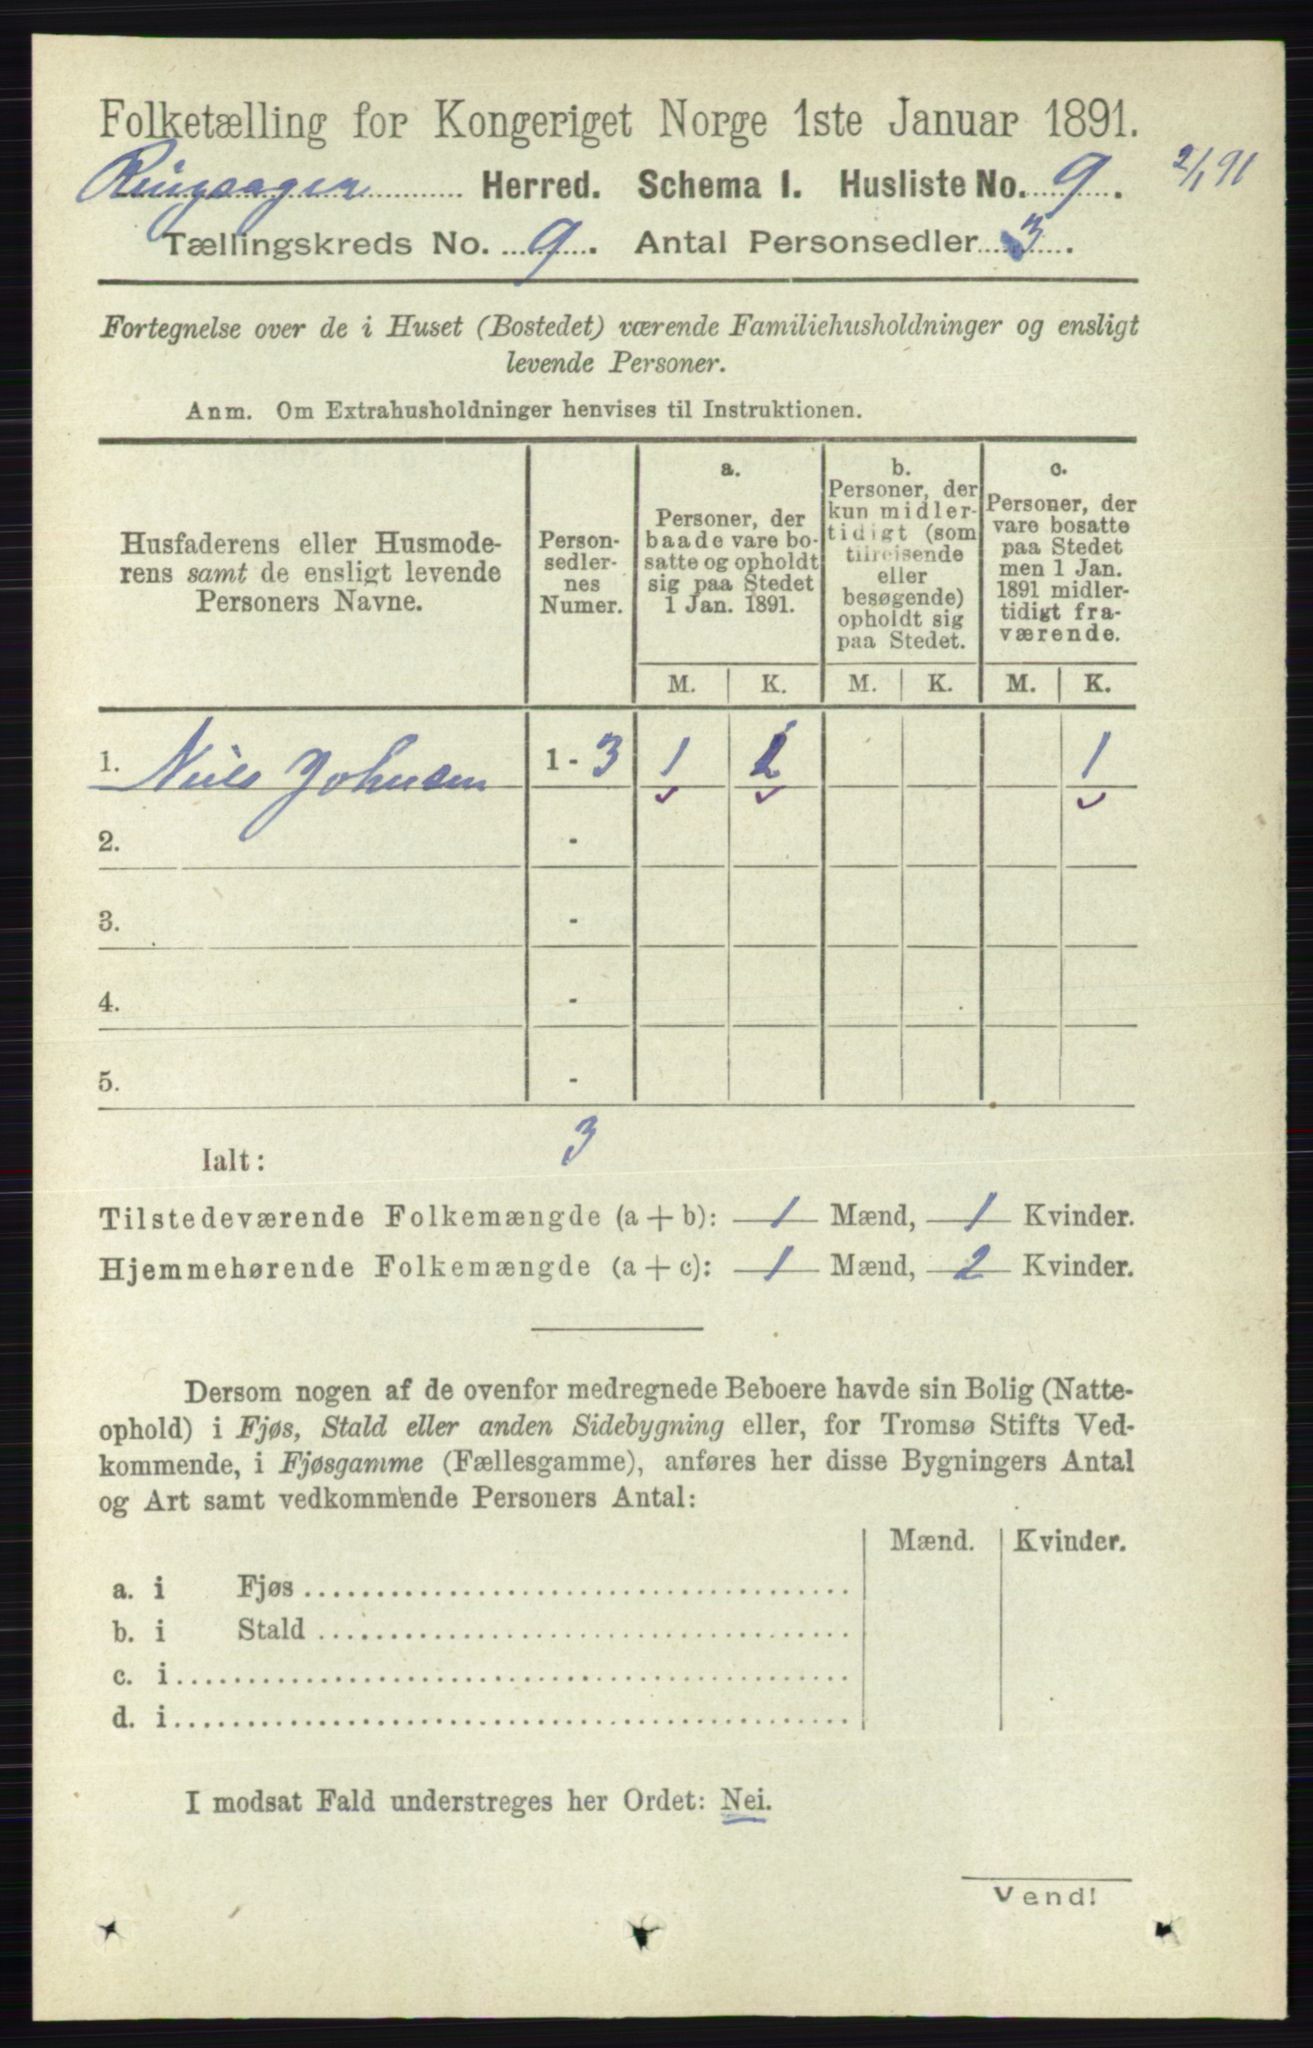 Folketælling for Kongeriget Norge 1ste Januar 1891.
Ringsager Herred. Schema I. Husliste No. 9. 2/1 91
Tællingskreds No. 9. Antal Personsedler 3.
Fortegnelse over de i Huset (Bostedet) værende Familiehusholdninger og ensligt
levende Personer.
Anm. Om Extrahusholdninger henvises til Instruktionen.
Husfaderens eller Husmode-
rens samt de ensligt levende
Personers Navne.
Person-
sedler-
nes
Numer.
a.
Personer, der
baade vare bo-
satte og opholdt
sig paa Stedet
1 Jan. 1891.
b.
Personer, der
kun midler-
tidigt (som
tilreisende
eller
besøgende)
opholdt sig
paa Stedet.
c.
Personer, der
vare bosatte
paa Stedet
men 1 Jan.
1891 midler-
tidigt fra-
værende.
M. K. M. K. M. K.
1. Niels Johnsen 1 - 3 1 1 1
2. -
3. -
4. -
5. -
Ialt: 3
Tilstedeværende Folkemængde (a + b): 1 Mænd, 1 Kvinder.
Hjemmehørende Folkemængde (a + c): 1 Mænd, 2 Kvinder.
Dersom nogen af de ovenfor medregnede Beboere havde sin Bolig (Natte-
ophold) i Fjøs, Stald eller anden Sidebygning eller, for Tromsø Stifts Ved-
kommende, i Fjøsgamme (Fællesgamme), anføres her disse Bygningers Antal
og Art samt vedkommende Personers Antal:
Mænd. Kvinder.
a. i Fjøs
b. i Stald
c. i
d. i
I modsat Fald understreges her Ordet: Nei.
Vend!